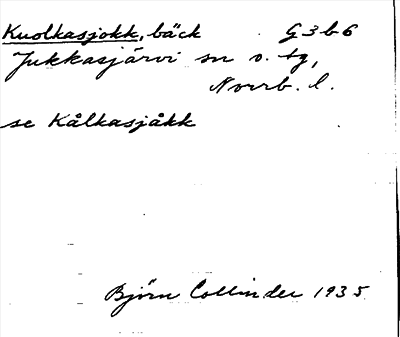 Kuolkasjokk, bäck G3b6
Jukkasjärvi sn o. tg,
Norrb. l.
se Kålkasjåkk
Björn Collinder 1935